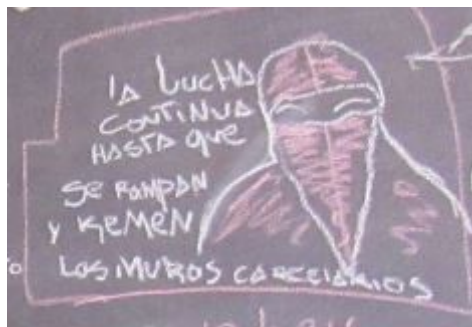 lA LUCHA
CONTINUA
HASTA QUE
SE ROMPAN
y KEMEN
LOS MUROS CARCELARIOS